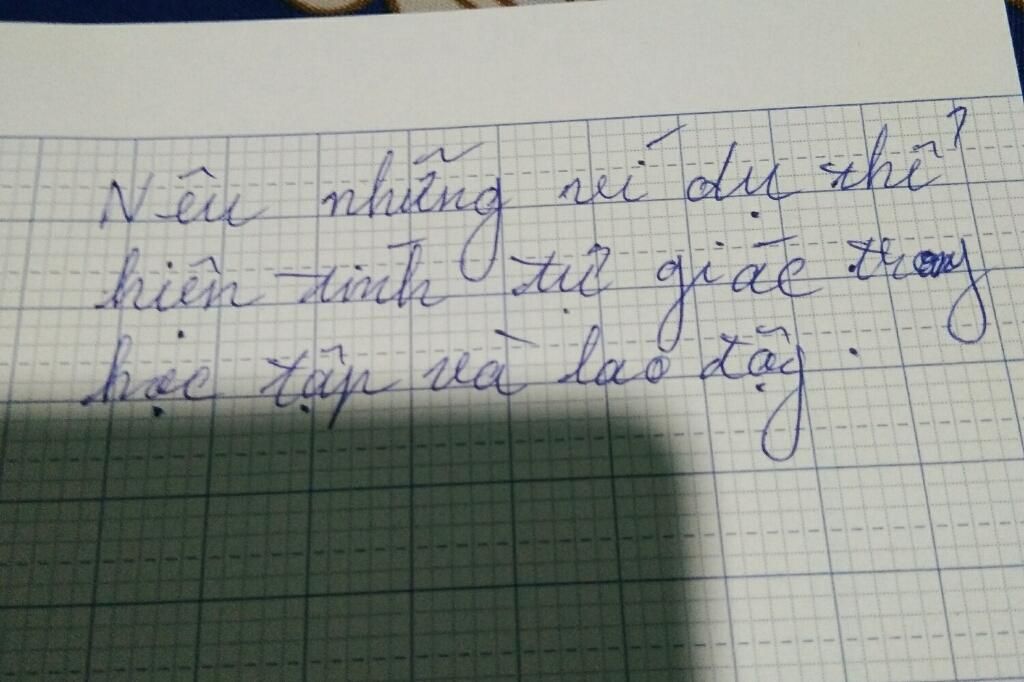 Nêu những ví dụ thể
hiện tính tự giác trong
học tập và lao động.